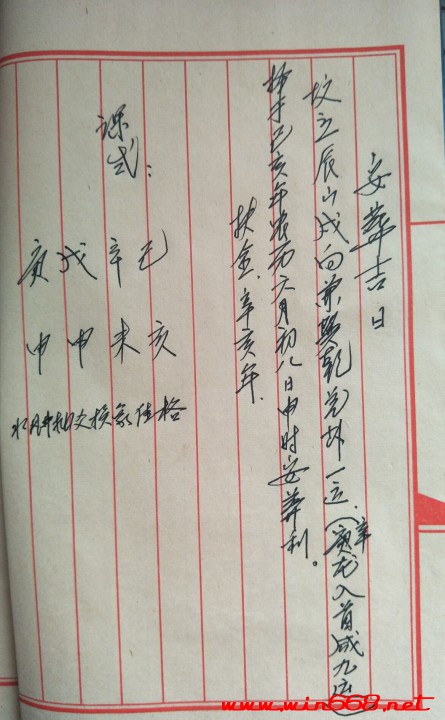 安葬吉日
坟立辰山戌向兼巽乾兑卦一运.(辛庚龙入首成九运
择于己亥年农历六月初八日申时安葬利。
扶金.辛亥年.
课式：
庚戌辛己
申申未亥
格
www.win668.net